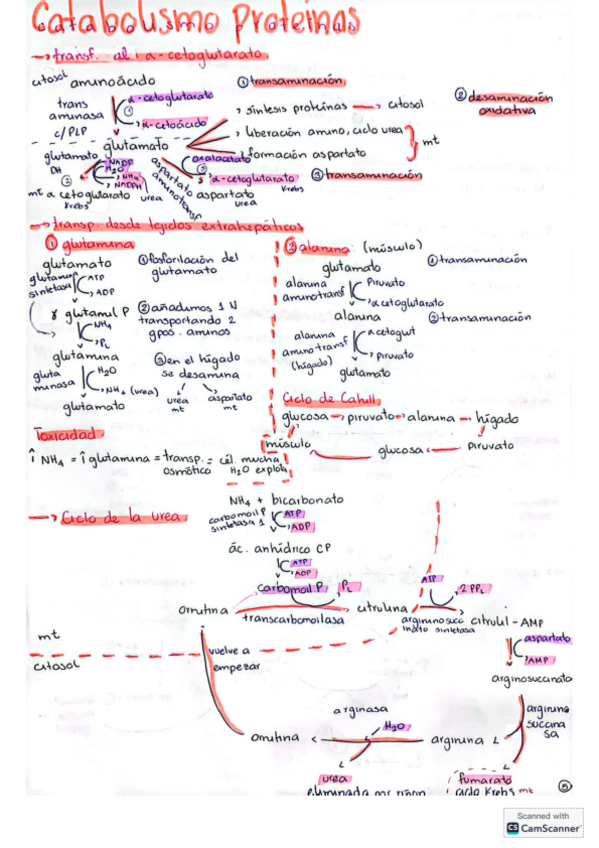 Catabolismo proteinas
→ transf. al α-cetoglutarato
citosol aminoácido
① transaminación
α-cetoglutarato
trans aminasa c/PLP
①
α-cetoácido
② desaminación oxidativa
, síntesis proteínas → citosol
, liberación amino, ciclo urea
glutamato
, formación aspartato
mt
glutamato DH
NADP
H₂O
②
NH₄
NADPH
aspartato aminotransf
oxalacetato
③
α-cetoglutarato
Krebs
③ transaminación
mt α cetoglutarato
Krebs
urea
aspartato
urea
→ transp. desde tejidos extrahepáticos
① glutamina
glutamato
① fosforilación del glutamato
glutamina sintetasa
ATP
ADP
γ glutamil P
② añadimos 1 N transportando 2 gpos. aminos
NH₄
Pi
glutamina
③ en el hígado se desamina
gluta minasa
H₂O
NH₄ (urea)
urea mt
aspartato mt
glutamato
② alanina: (músculo)
glutamato
① transaminación
alanina aminotransf
Piruvato
α cetoglutarato
alanina
② transaminación
alanina amino transf (hígado)
α cetoglut
piruvato
glutamato
Ciclo de Cahill
glucosa → piruvato → alanina → hígado
músculo
glucosa ← piruvato
Toxicidad
↑ NH₄ = ↑ glutamina = transp. osmótico = cél. mucha H₂O explota
→ Ciclo de la urea
NH₄ + bicarbonato
carbomoil P sintetasa 1
ATP
ADP
ác. anhídrico CP
ATP
ADP
carbomoil P
Pi
ATP
2 PPi
ornitina
transcarbomoilasa
citrulina
arginosuccinato sintetasa
citrulil - AMP
mt
citosol
aspartato
AMP
vuelve a empezar
arginosuccinato
arginina succina sa
arginasa
H₂O
ornitina
arginina
urea
eliminada por riñón
fumarato
ciclo Krebs mt
⑤
Scanned with
CS CamScanner